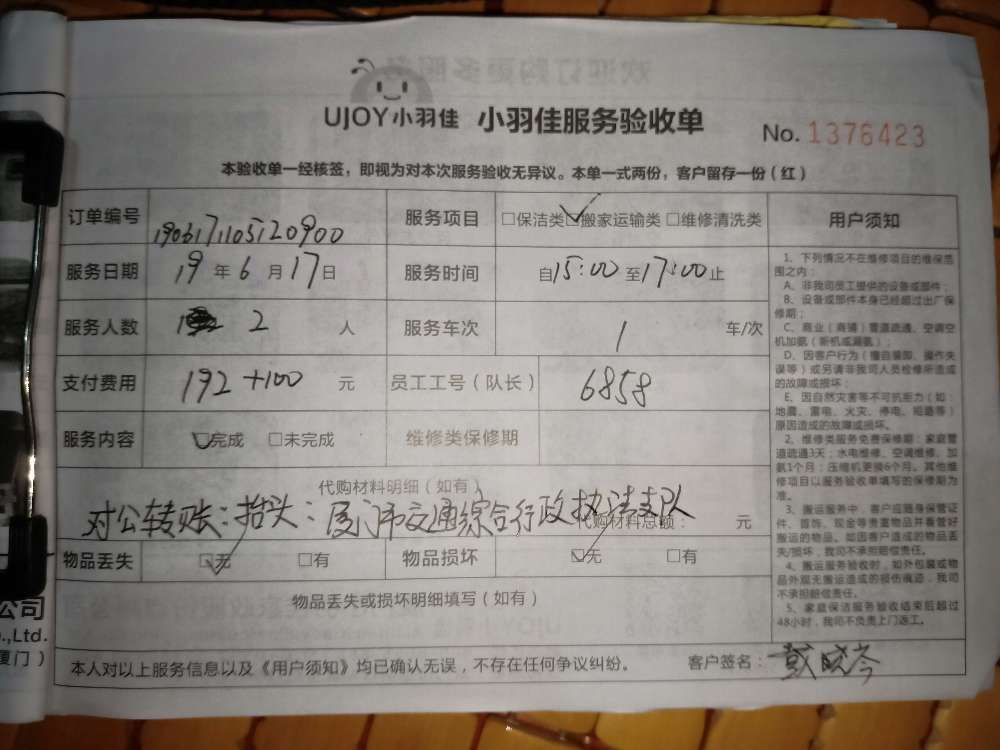 UJOY小羽佳 小羽佳服务验收单 No. 1376423
本验收单一经核签，即视为对本次服务验收无异议。本单一式两份，客户留存一份（红）
订单编号 1906171105120900 服务项目 □保洁类 ☑搬家运输类 □维修清洗类
服务日期 19年6月17日 服务时间 自15:00至17:00止
服务人数 2 人 服务车次 1 车/次
支付费用 192+100 元 员工工号（队长） 6858
服务内容 ☑完成 □未完成 维修类保修期
代购材料明细（如有）
对公转账：抬头：厦门市交通综合行政执法支队
代购材料总额： 元
物品丢失 ☑无 □有 物品损坏 ☑无 □有
物品丢失或损坏明细填写（如有）
本人对以上服务信息以及《用户须知》均已确认无误，不存在任何争议纠纷。 客户签名：戴晓芩
用户须知
1、下列情况不在维修项目的维保范
围之内：
A、非我司员工提供的设备或部件；
B、设备或部件本身已经超过出厂保
修期；
C、商业（商铺）管道疏通、空调空
机加氨（新机或漏氨）；
D、因客户行为（擅自装卸、操作失
误等）或另请非我司人员检修所造成
的故障或损坏；
E、因自然灾害等不可抗拒力（如：
地震、雷电、火灾、停电、短路等）
原因造成的故障或损坏。
2、维修类服务免费保修期：家庭管
道疏通3天；水电维修、空调维修、加
氨1个月；压缩机更换6个月。其他维
修项目以服务验收单填写的保修期为
准。
3、搬运服务中，客户应随身保管证
件、首饰、现金等贵重物品并看管好
搬运的物品。如因客户造成的物品丢
失/损坏，我司不承担赔偿责任。
4、搬运服务验收时，如外包装或物
品外观无搬运造成的损伤痕迹，我司
不承担赔偿责任。
5、家庭保洁服务验收结束后超过
48小时，我司不负责上门返工。
公司
.,Ltd.
厦门）